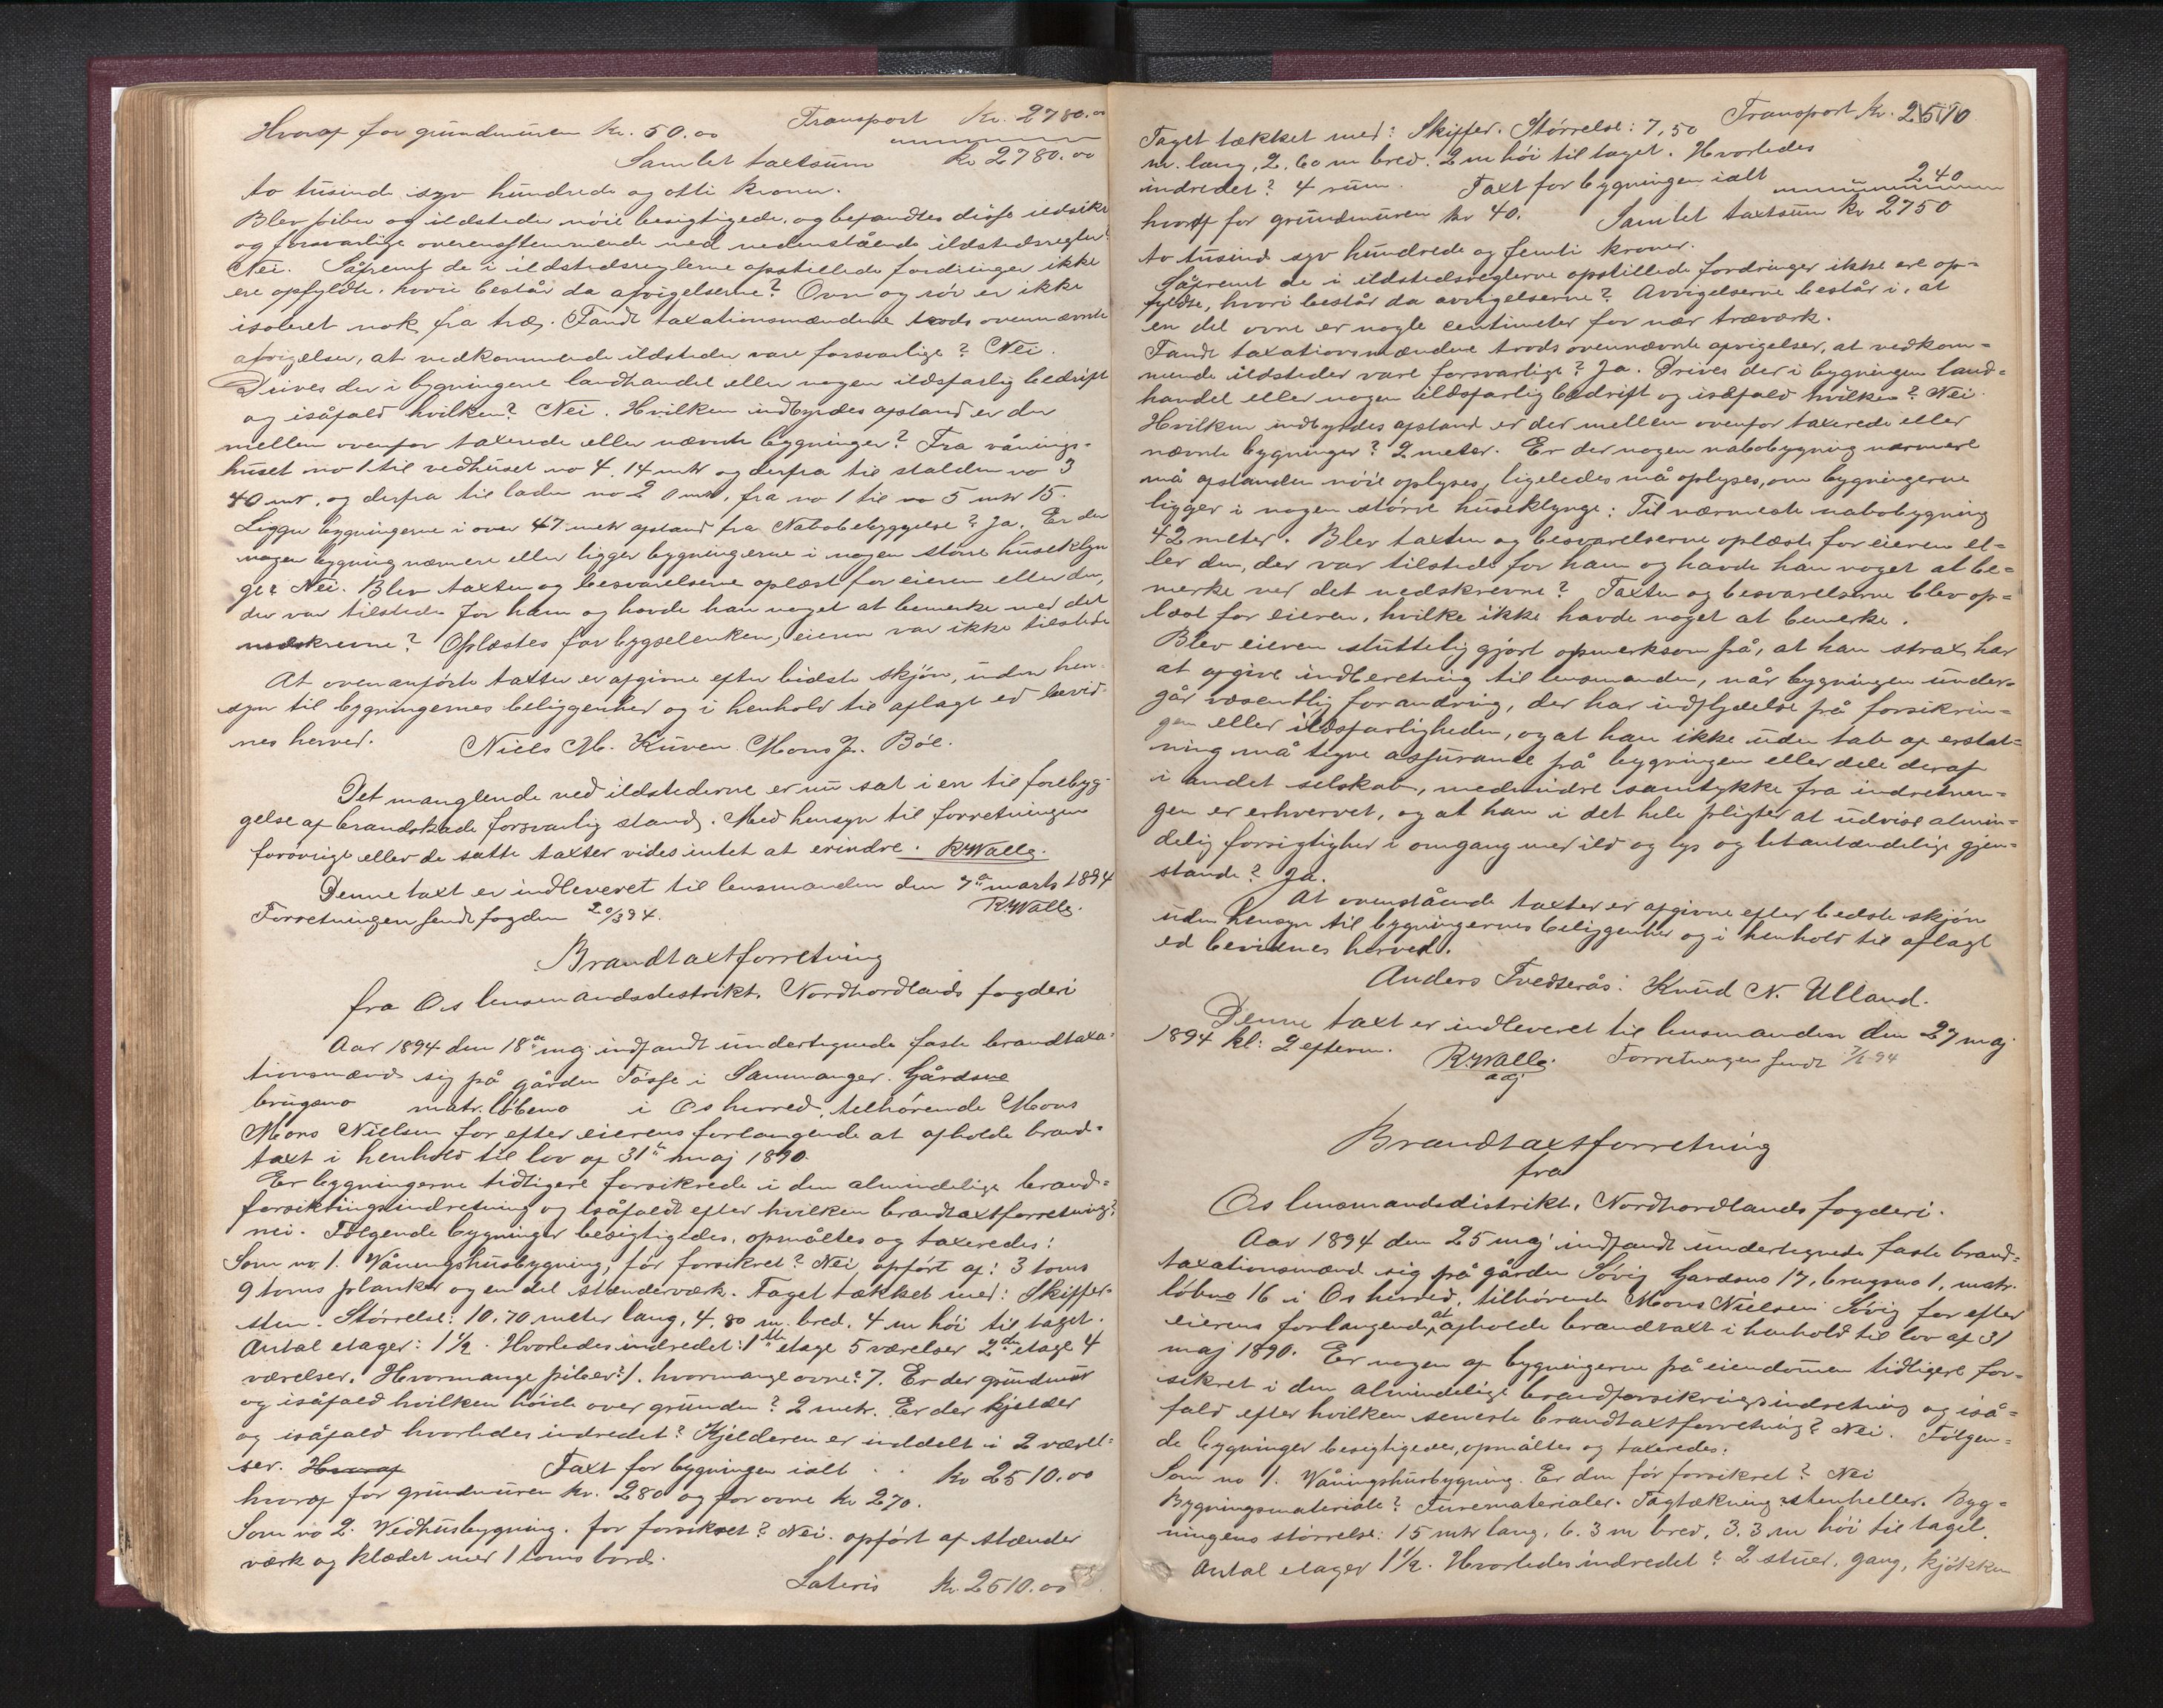 Transport Kr. 2780.00
Hvoraf for grundmuren Kr. 50.00
Samlet taxtsum Kr 2780.00
to tusinde syv hundrede og otti kroner.
Blev piber og ildsteder nöie besigtigede, og befandtes disse ildsikre
og forsvarlige overensstemmende med nedenstående ildstedsregler?
Nei. Såfremt de i ildstedsreglerne opstillede fordringer ikke
ere opfyldte, hvori består da afvigelserne? Ovn og rör er ikke
isoleret nok fra træ. Fandt taxationsmændene trods ovennævnte
afvigelser, at vedkommende ildsteder vare forsvarlige? Nei.
Drives der i bygningerne landhandel eller nogen ildsfarlig bedrift
og isåfald hvilken? Nei. Hvilken indbyrdes afstand er der
mellem ovenfor taxerede eller nævnte bygninger? Fra vånings-
huset no 1 til vedhuset no 4. 14 mtr og derfra til stalden no 3
40 mtr, og derfra til laden no 2 0 mtr, fra no 1 til no 5 mtr 15.
Ligger bygningerne i over 47 metr afstand fra Nabobebyggelse? Ja. Er der
nogen bygning nærmere eller ligger bygningerne i nogen större huseklyn
ge? Nei. Blev taxten og besvarelserne oplæst for eieren eller den,
der var tilstede for ham og havde han noget at bemerke ved det
nedskrevne? Oplæstes for bygselenken, eieren var ikke tilstede
At ovenanförte taxter er afgivne efter bedste skjön, uden hen-
syn til bygningernes beliggenhed og i henhold til aflagt ed bevid-
nes herved. Niels M. Kuven. Mons J. Böe.
Det manglende ved ildstederne er nu sat i en til forebyg-
gelse af brandskade forsvarlig stand. Med hensyn til forretningen
forövrigt eller de satte taxter vides intet at erindre. R Walle.
Denne taxt er indleveret til lensmanden den 7de marts 1894
R. Walle.
Forretningen sendt fogden 20/3 94.
Brandtaxtforretning
fra Os lensmandsdistrikt, Nordhordlands fogderi
Aar 1894 den 18de maj indfandt undertegnede faste brandtaxa-
tionsmænd sig på gården Tösse i Sammanger. Gårdsno
brugsno matr. löbeno i Os herred, tilhörende Mons
Mons Nielsen for efter eierens forlangende at afholde brand-
taxt i henhold til lov af 31te maj 1890.
Er bygningerne tidligere forsikrede i den almindelige brand-
forsikringsindretning og isåfaldt efter hvilken brandtaxtforretning?
nei. Fölgende bygninger besigtigedes, opmåltes og taxeredes:
Som no 1. Våningshusbygning, för forsikret? Nei, opfört af: 3 toms
9 toms planker og en del stænderværk. Taget tækket med: Skiffer-
sten. Störrelse: 10,70 meter lang, 4,80 m. bred, 4 m höi til taget.
Antal etager: 1½. Hvorledes indredet: 1ste etage 5 værelser 2den etage 4
værelser. Hvormange piber? 1. hvormange ovne? 7. Er der grundmur
og isåfald hvilken höide over grunden? 2 metr. Er der kjelder
og isåfald hvorledes indredet? Kjelderen er inddelt i 2 værel-
ser. Hvoraf Taxt for bygningen ialt . . Kr 2510.00
hvoraf for grundmuren Kr. 280 og for ovne Kr 270.
Som no 2. Vedhusbygning. för forsikret? Nei. opfört af stænder
værk og klædet med 1 toms bord.
Lateris Kr. 2510.00
Transport Kr. 2510
Taget tækket med: Skiffer. Störrelse: 7,50
m. lang, 2,60 m bred. 2 m höi til taget. Hvorledes
indredet? 4 rum. Taxt for bygningen ialt 240
hvoraf for grundmuren Kr 40. Samlet taxtsum Kr 2750
to tusind syv hundrede og femti kroner.
Såfremt de i ildstedsreglerne opstillede fordringer ikke ere op-
fyldte, hvori består da avvigelserne? Avvigelserne består i, at
en del ovne er nogle centimeter for nær træverk.
Fandt taxationsmændene trods ovennævnte afvigelser, at vedkom-
mende ildsteder vare forsvarlige? Ja. Drives der i bygningen land-
handel eller nogen ildsfarlig bedrift og isåfald hvilken? Nei.
Hvilken indbyrdes afstand er der mellem ovenfor taxerede eller
nævnte bygninger? 2 meter. Er der nogen nabobygning nærmere
må afstanden nöie oplyses, ligeledes må oplyses, om bygningerne
ligger i nogen större huseklynge: Til nærmeste nabobygning
42 meter. Blev taxten og besvarelserne oplæste for eieren el-
ler den, der var tilstede for ham og havde han noget at be-
merke ved det nedskrevne? Taxten og besvarelserne blev op-
læst for eieren, hvilke ikke havde noget at bemerke.
Blev eieren sluttelig gjort opmerksom på, at han strax har
at afgive indberetning til lensmanden, når bygningen under-
går væsentlig forandring, der har indflydelse på forsikrin-
gen eller ildsfarligheden, og at han ikke uden tab af erstat-
ning må tegne assurance på bygningen eller dele deraf
i andet selskab, medmindre samtykke fra indretnin-
gen er erhvervet, og at han i det hele pligter at udvise almin-
delig forsigtighed i omgang med ild og lys og letantændelige gjen-
stande? Ja.
At ovenstående taxter er afgivne efter bedste skjön
uden hensyn til bygningernes beliggenhed og i henhold til aflagt
ed bevidnes herved.
Anders Tvedterås. Knud N. Ulland.
Denne taxt er indleveret til lensmanden den 27 maj
1894 kl: 2 efterm. R. Walle. Forretningen sendt 7/6 94
adj
Brandtaxtforretning
fra
Os lensmandsdistrikt, Nordhordlands fogderi.
Aar 1894 den 25 maj indfandt undertegnede faste brand-
taxationsmænd sig på gården Sövig Gardsno 17, brugsno 1, matr.
löbno 16 i Os herred, tilhörende Mons Nielsen Sövig for efter
eierens forlangende at afholde brandtaxt i henhold til lov af 31
maj 1890. Er nogen af bygningerne på eiendommen tidligere for-
sikret i den almindelige brandforsikringsindretning og iså-
fald efter hvilken seneste brandtaxtforretning? Nei. Fölgen-
de bygninger besigtigedes, opmåltes og taxeredes:
Som no 1. Våningshusbygning. Er den för forsikret? Nei
Bygningsmateriale? Furematerialer. Tagtækning: stenheller. Byg-
ningens störrelse: 15 mtr lang, 6.3 m bred, 3.3 m höi til taget.
Antal etager 1½. Hvorledes indredet? 2 stuer, gang, kjökken